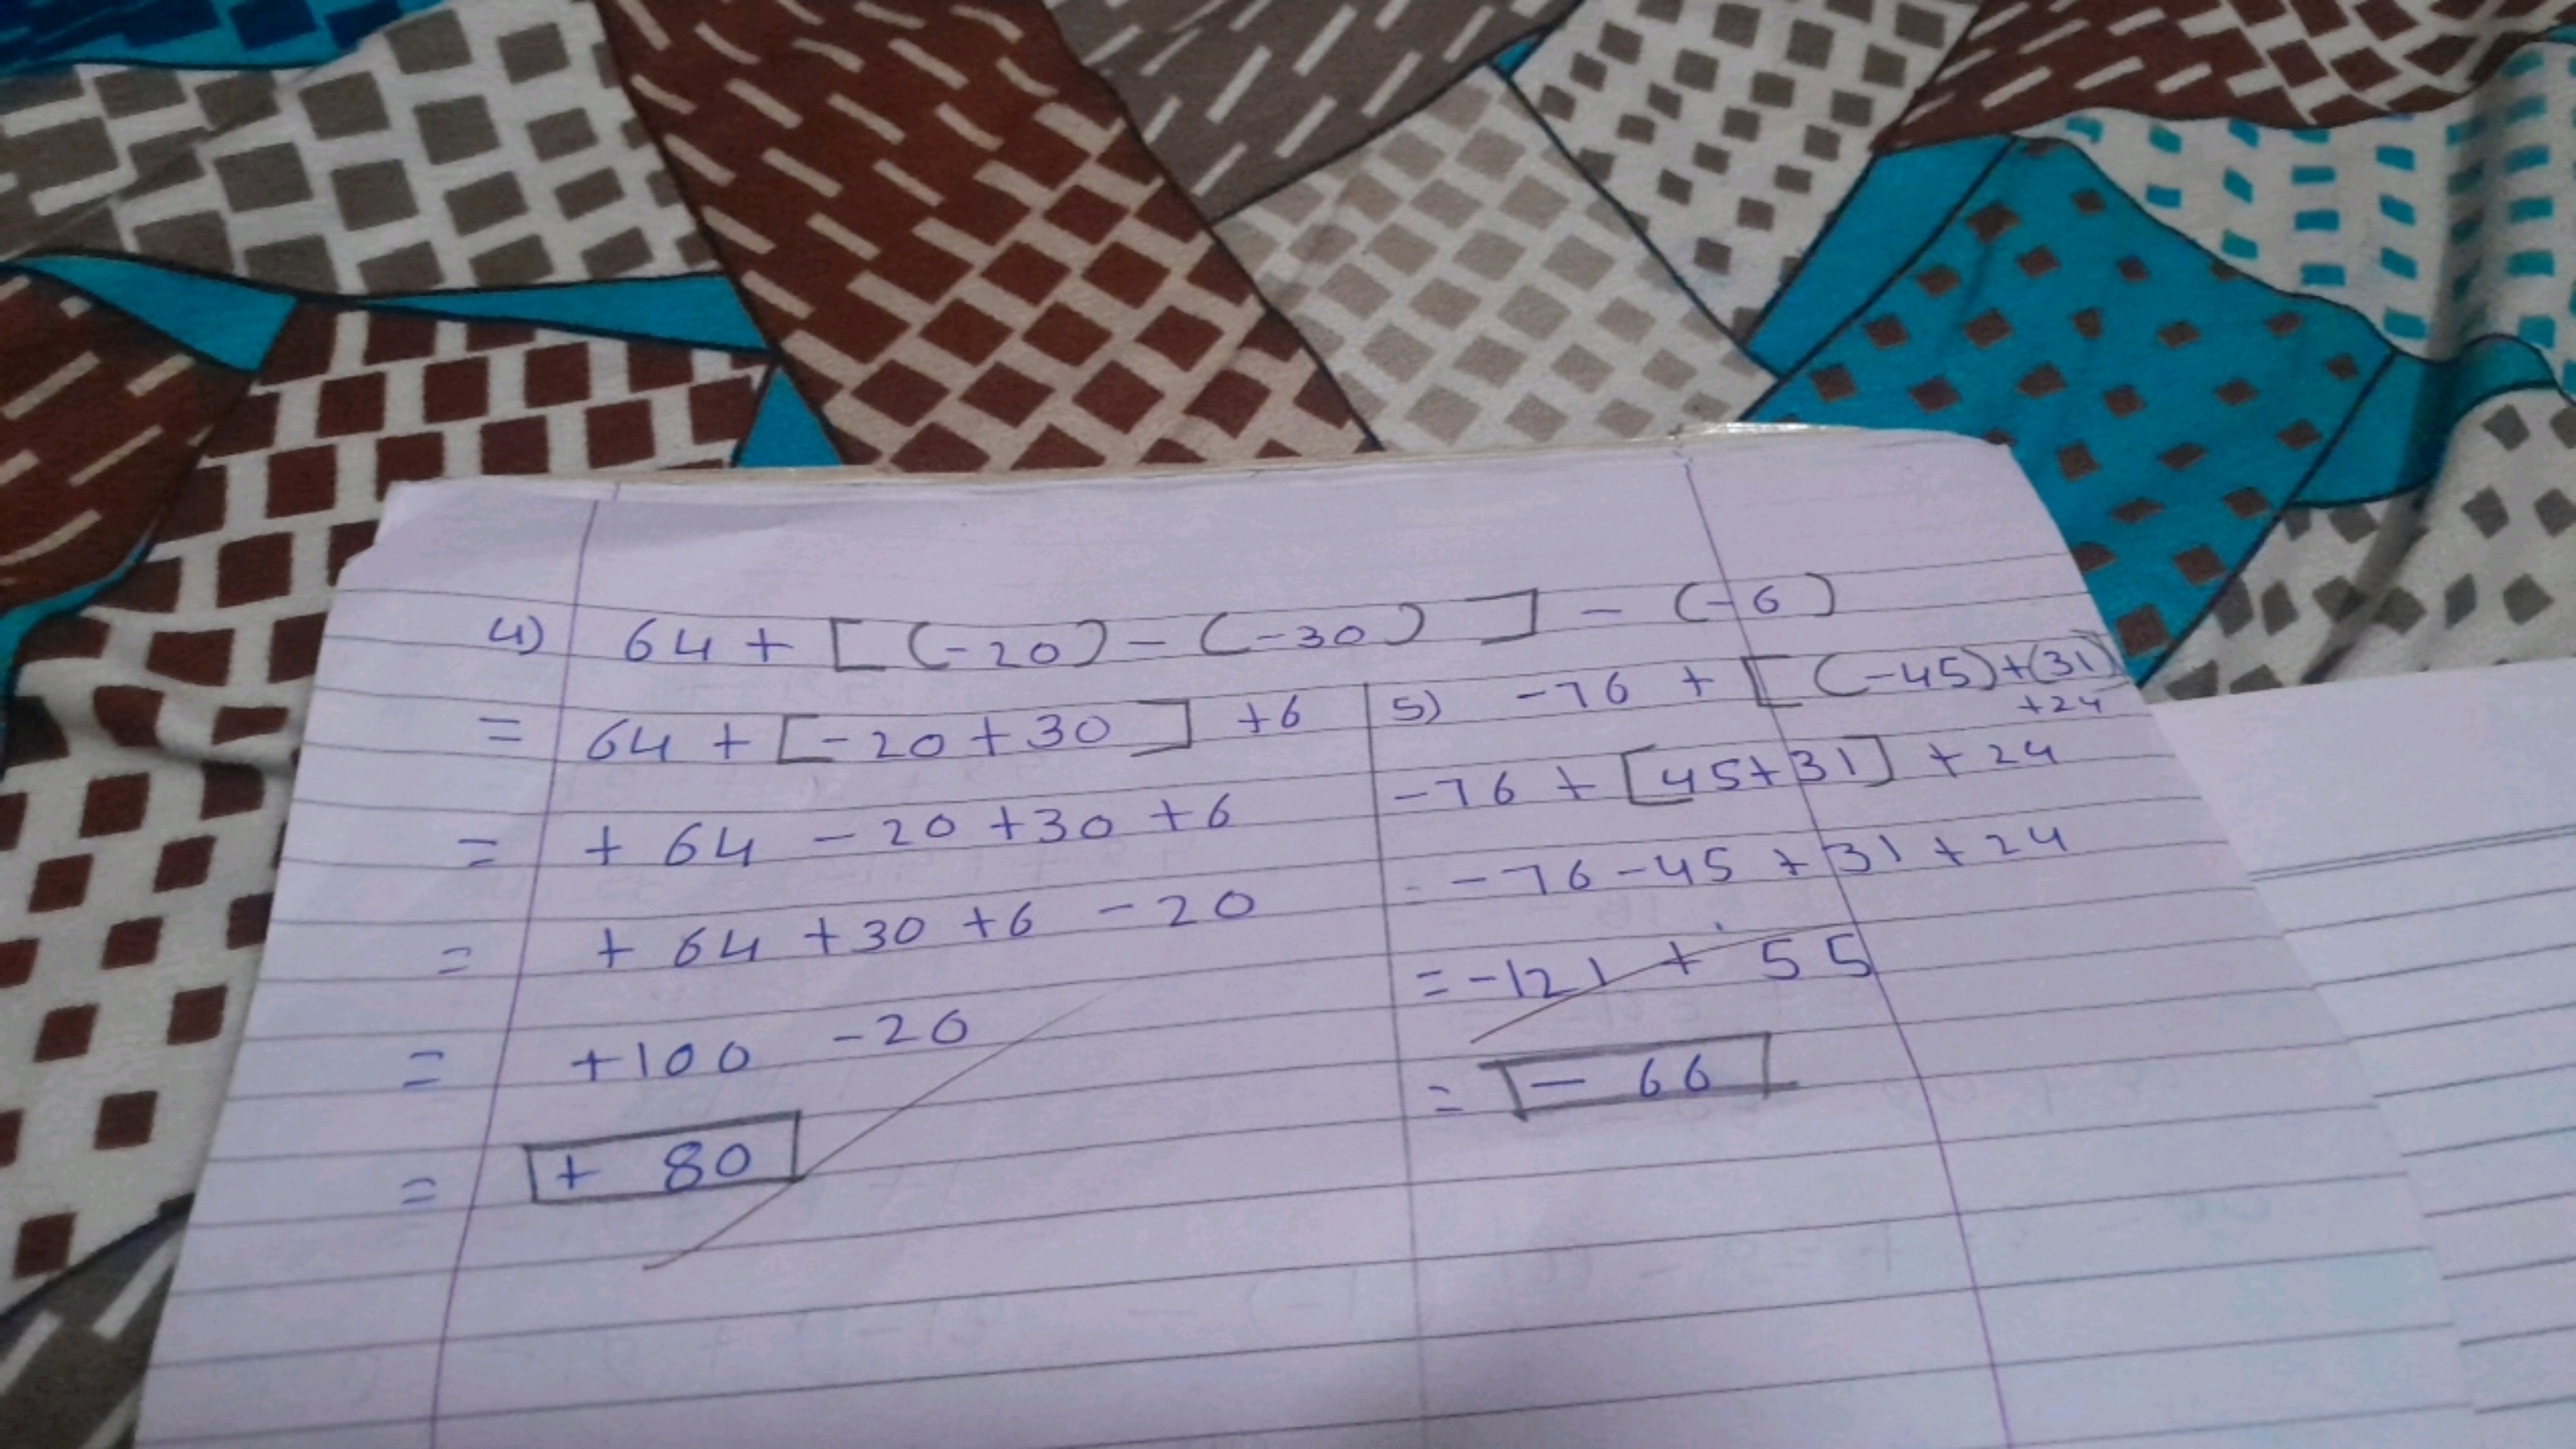 4) 64 + [ (-20) - (-30) ] - (-6)
= 64 + [-20+30] +6
= + 64 - 20 +30 +6
= + 64 +30 +6 -20
= +100 -20
= + 80
5) -76 + [ (-45)+(31)
+24
-76 + [45+31] + 24
- -76-45 + 31 + 24
= -121 + 55
= - 66